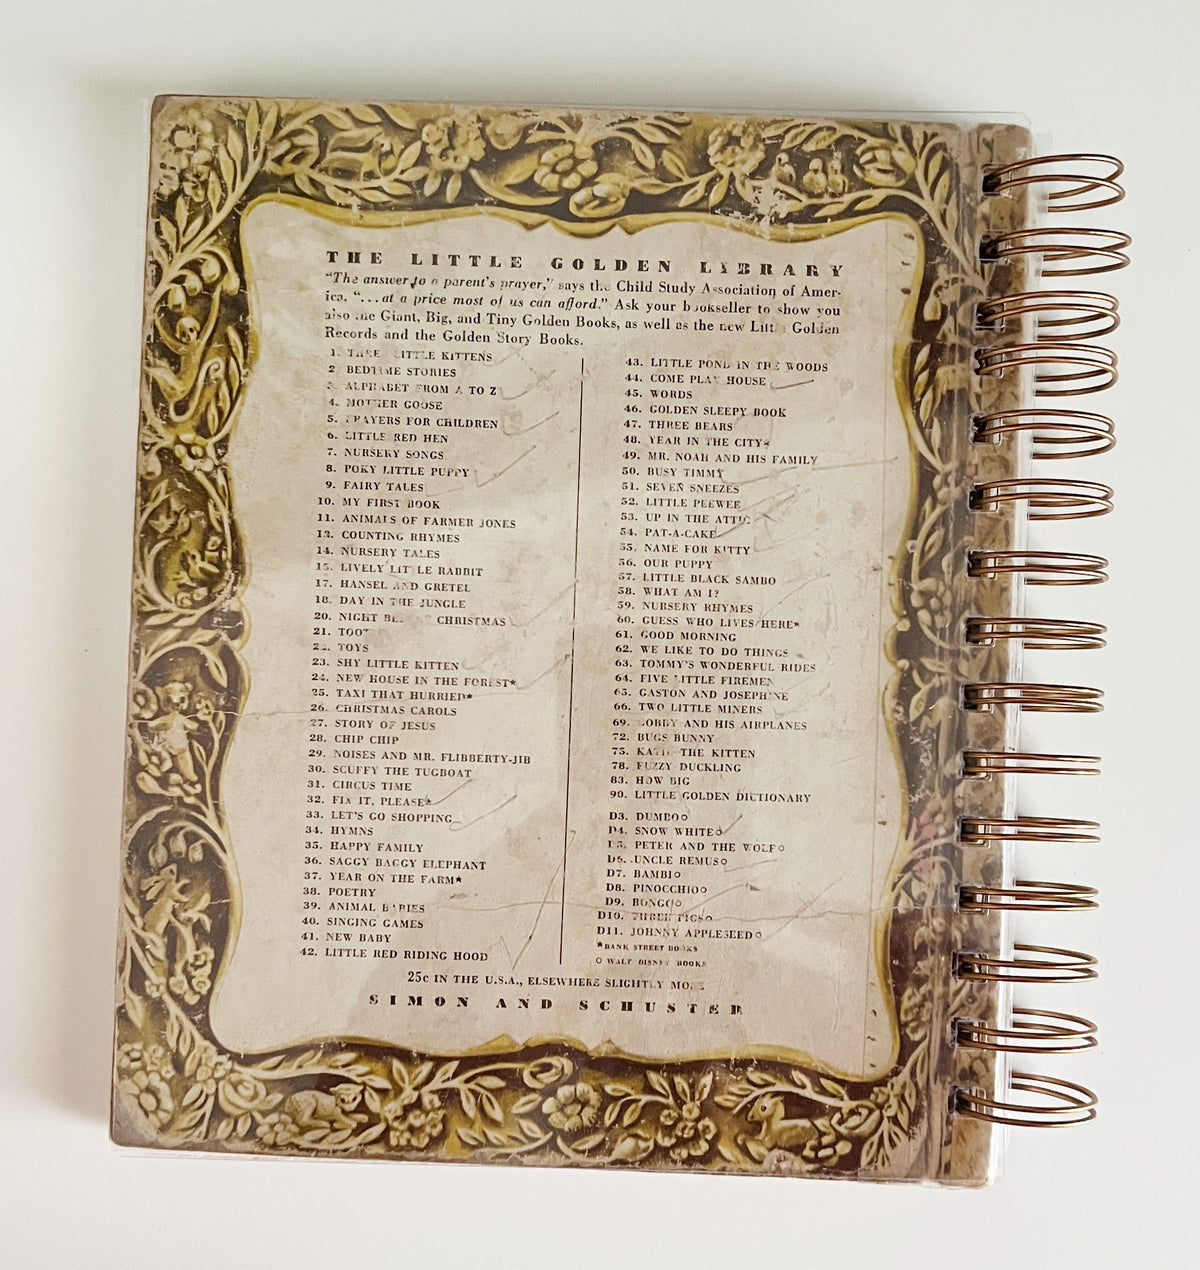 THE LITTLE GOLDEN LIBRARY
"The answer to a parent's prayer," says the Child Study Association of Amer-
ica. "...at a price most of us can afford." Ask your bookseller to show you
also the Giant, Big, and Tiny Golden Books, as well as the new Little Golden
Records and the Golden Story Books.
1. THREE LITTLE KITTENS
2 BEDTIME STORIES
3. ALPHABET FROM A TO Z
4. MOTHER GOOSE
5. PRAYERS FOR CHILDREN
6. LITTLE RED HEN
7. NURSERY SONGS
8. POKY LITTLE PUPPY
9. FAIRY TALES
10. MY FIRST BOOK
11. ANIMALS OF FARMER JONES
12. COUNTING RHYMES
14. NURSERY TALES
15. LIVELY LITTLE RABBIT
17. HANSEL AND GRETEL
18. DAY IN THE JUNGLE
20. NIGHT CHRISTMAS
21. TOOT
22. TOYS
23. SHY LITTLE KITTEN
24. NEW HOUSE IN THE FOREST★
25. TAXI THAT HURRIED★
26. CHRISTMAS CAROLS
27. STORY OF JESUS
28. CHIP CHIP
29. NOISES AND MR. FLIBBERTY-JIB
30. SCUFFY THE TUGBOAT
31. CIRCUS TIME
32. FIX IT, PLEASE★
33. LET'S GO SHOPPING
34. HYMNS
35. HAPPY FAMILY
36. SAGGY BAGGY ELEPHANT
37. YEAR ON THE FARM★
38. POETRY
39. ANIMAL BABIES
40. SINGING GAMES
41. NEW BABY
42. LITTLE RED RIDING HOOD
43. LITTLE POND IN THE WOODS
44. COME PLAY HOUSE
45. WORDS
46. GOLDEN SLEEPY BOOK
47. THREE BEARS
48. YEAR IN THE CITY★
49. MR. NOAH AND HIS FAMILY
50. BUSY TIMMY
51. SEVEN SNEEZES
52. LITTLE PEEWEE
53. UP IN THE ATTIC
54. PAT-A-CAKE
55. NAME FOR KITTY
56. OUR PUPPY
57. LITTLE BLACK SAMBO
58. WHAT AM I?
59. NURSERY RHYMES
60. GUESS WHO LIVES HERE★
61. GOOD MORNING
62. WE LIKE TO DO THINGS
63. TOMMY'S WONDERFUL RIDES
64. FIVE LITTLE FIREMEN
65. GASTON AND JOSEPHINE
66. TWO LITTLE MINERS
69. BOBBY AND HIS AIRPLANES
72. BUGS BUNNY
75. KATIE THE KITTEN
78. FUZZY DUCKLING
83. HOW BIG
90. LITTLE GOLDEN DICTIONARY
D3. DUMBO○
D4. SNOW WHITE○
D5. PETER AND THE WOLF○
D6. UNCLE REMUS○
D7. BAMBI○
D8. PINOCCHIO○
D9. BONGO○
D10. THREE PIGS○
D11. JOHNNY APPLESEED○
★BANK STREET BOOKS
○ WALT DISNEY BOOKS
25c IN THE U.S.A., ELSEWHERE SLIGHTLY MORE
SIMON AND SCHUSTER